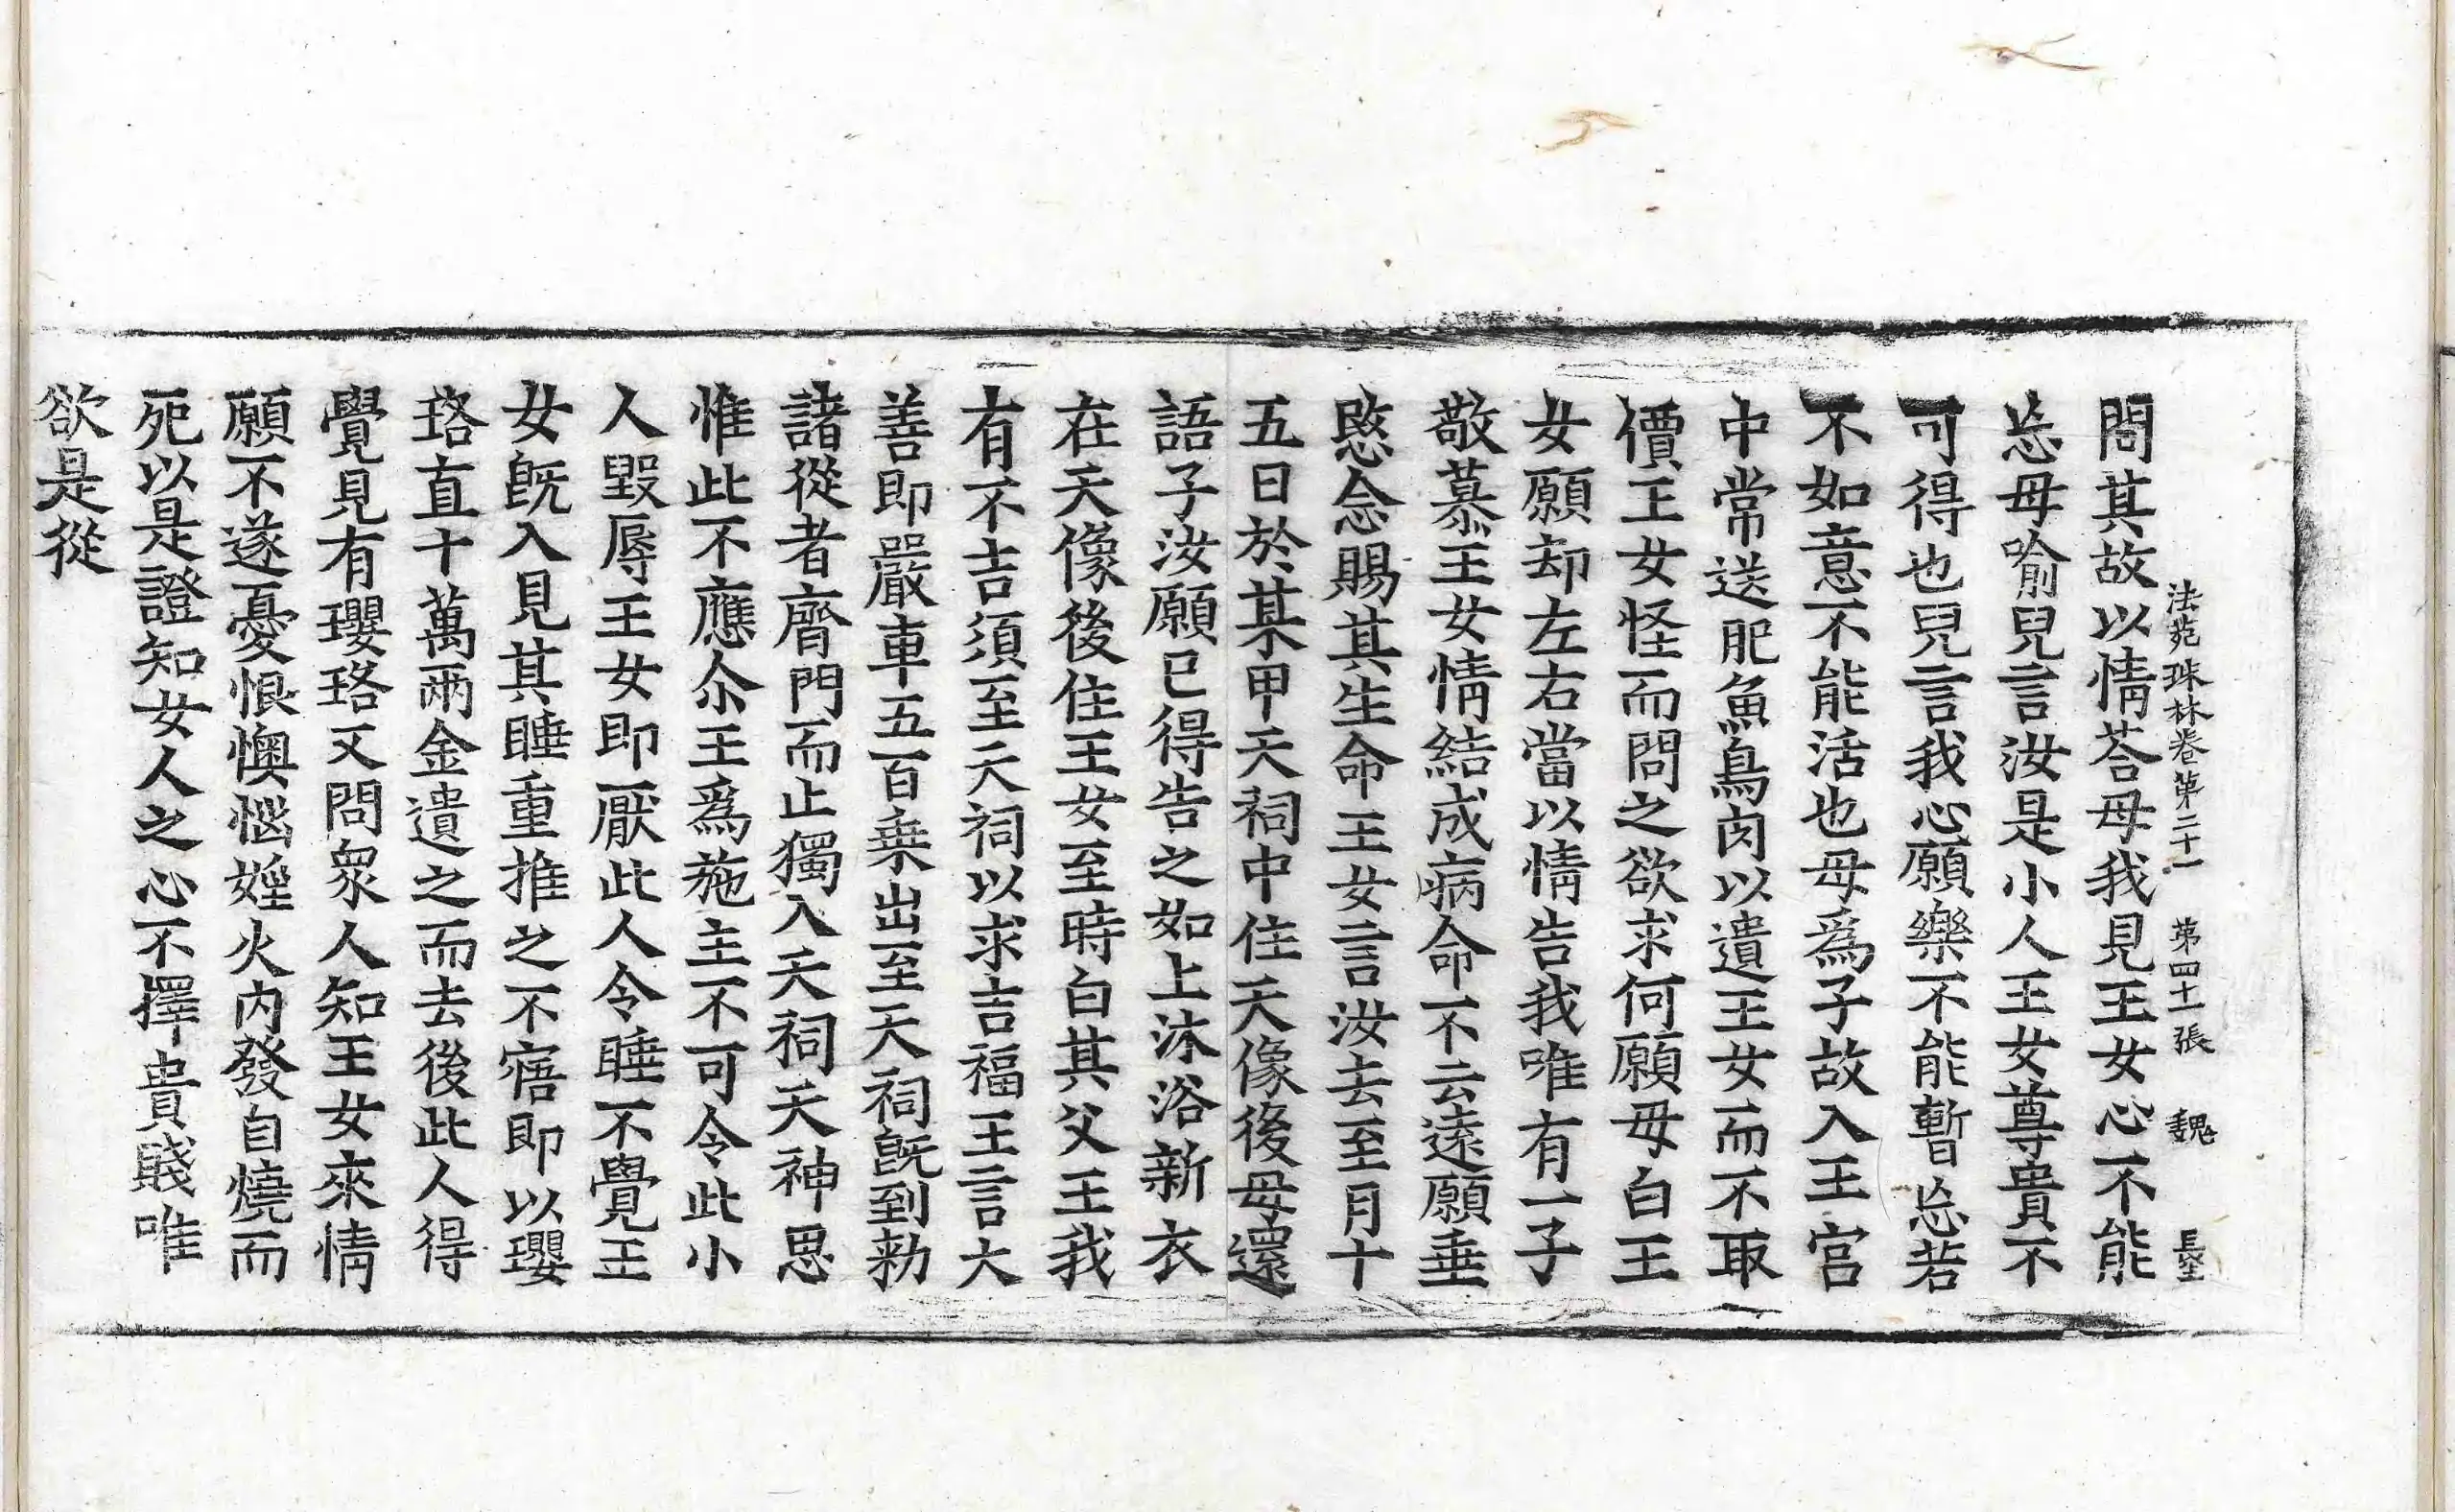 法苑珠林卷第二十一　第四十一張　魏
問其故以情荅母我見王女心不能
忘母喻兒言汝是小人王女尊貴不
可得也兒言我心願樂不能暫忘若
不如意不能活也母爲子故入王宮
中常送肥魚鳥肉以遺王女而不取
價王女怪而問之欲求何願母白王
女願却左右當以情告我唯有一子
敬慕王女情結成病命不云遠願垂
愍念賜其生命王女言汝去至月十
五日於某甲天祠中住天像後母還
語子汝願已得告之如上沐浴新衣
在天像後住王女至時白其父王我
有不吉須至天祠以求吉福王言大
善即嚴車五百乗出至天祠旣到勑
諸從者齊門而止獨入天祠天神思
惟此不應尒王爲施主不可令此小
人毀辱王女即厭此人令睡不覺王
女旣入見其睡重推之不寤即以瓔
珞直十萬兩金遺之而去後此人得
覺見有瓔珞又問衆人知王女來情
願不遂憂恨懊惱婬火內發自燒而
死以是證知女人之心不擇貴賤唯
欲是從